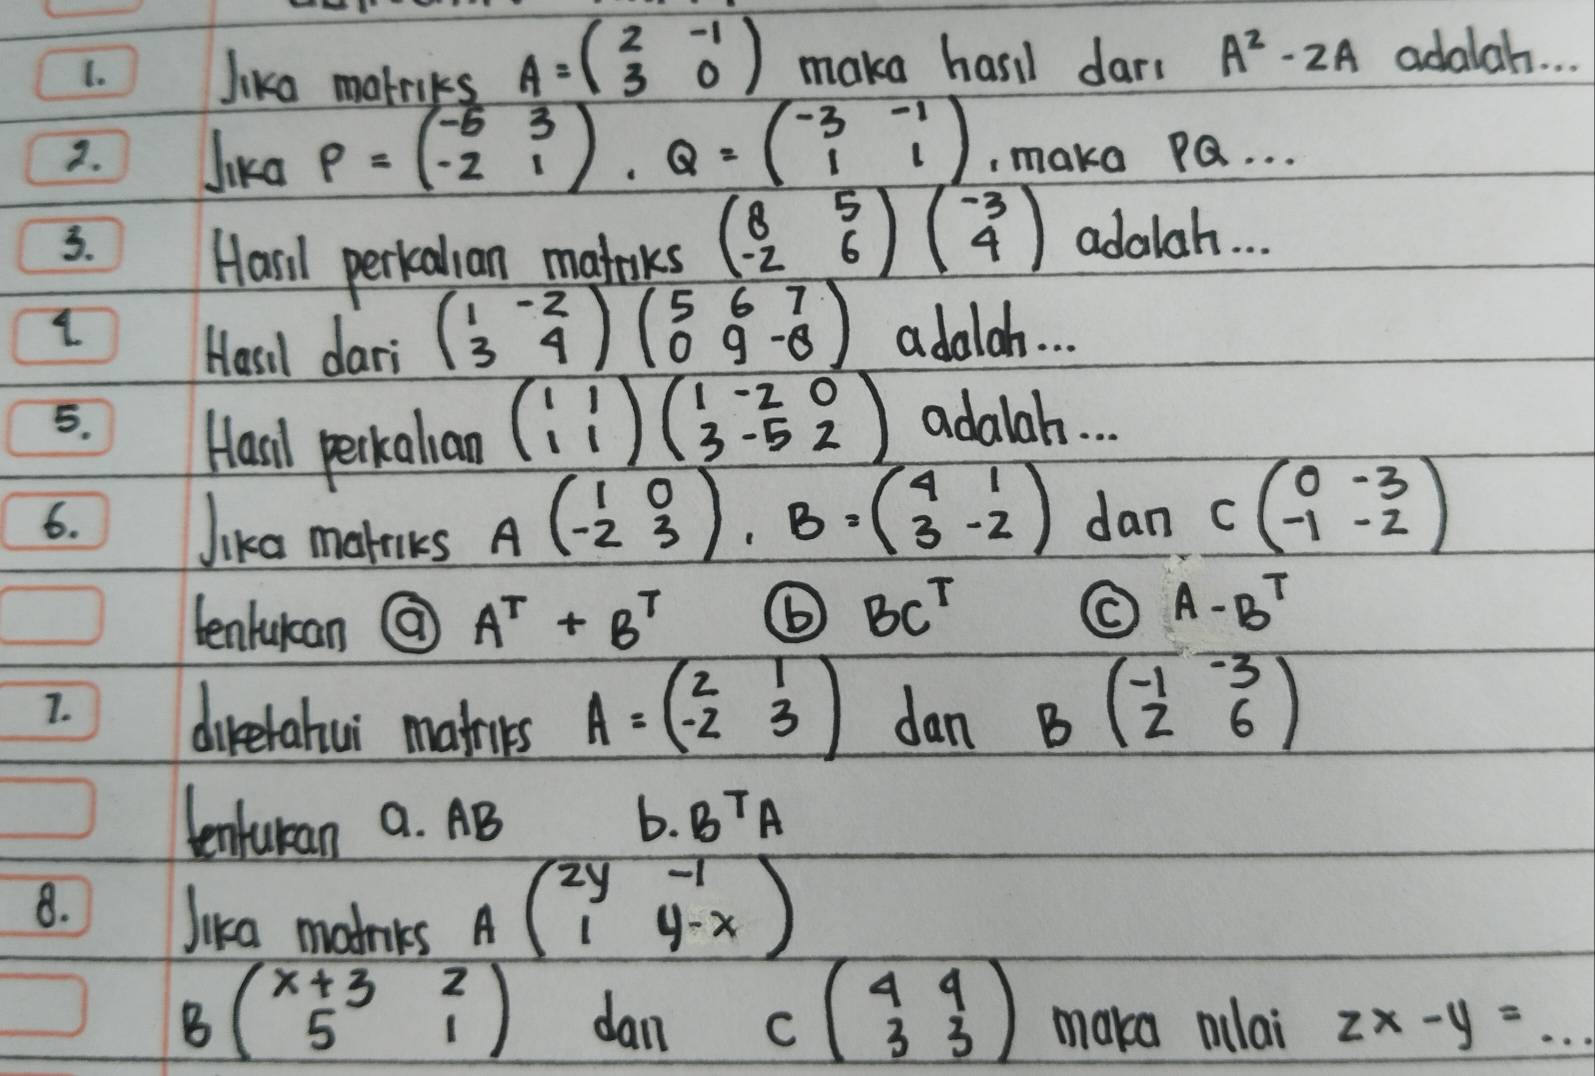 1. Jika matriks A = (2 -1
3 0) maka hasil dari A² - 2A adalah...
2. Jika P = (-5 3
-2 1), Q = (-3 -1
1 1), maka PQ...
3. Hasil perkalian matriks (8 5
-2 6) (-3
4) adalah...
4. Hasil dari (1 -2
3 4) (5 6 7
0 9 -8) adalah...
5. Hasil perkalian (1 1
1 1) (1 -2 0
3 -5 2) adalah...
6. Jika matriks A (1 0
-2 3), B = (4 1
3 -2) dan C (0 -3
-1 -2)
tentukan ⓐ Aᵀ + Bᵀ ⓑ BCᵀ ⓒ A - Bᵀ
7. diketahui matriks A = (2 1
-2 3) dan B (-1 -3
2 6)
tentukan a. AB b. BᵀA
8. Jika matriks A (2y -1
1 y-x)
B (x+3 2
5 1) dan C (4 4
3 3) maka nilai 2x - y = ...